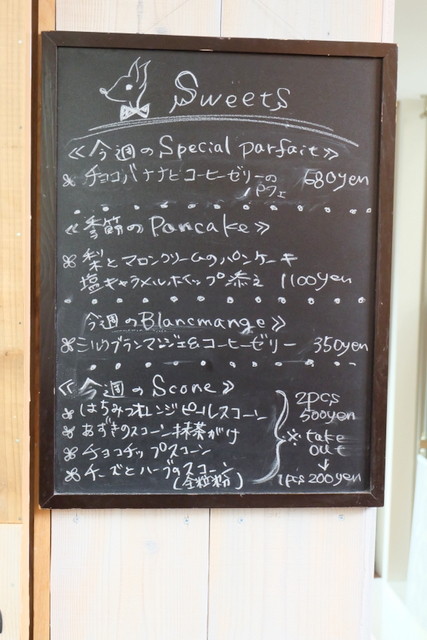 Sweets
≪今週のSpecial parfait≫
チョコバナナとコーヒーゼリーのパフェ 680yen
≪季節のPancake≫
梨とマロンクリームのパンケーキ
塩キャラメルホイップ添え 1100yen
今週のBlancmange≫
ミルクブランマンジェ&コーヒーゼリー 350yen
≪今週のScone≫
はちみつオレンジピールスコーン
あずきのスコーン抹茶がけ
チョコチップスコーン
チーズとハーブのスコーン
(全粒粉)
2pcs
500yen
※take
out
↓
1pcs 200yen